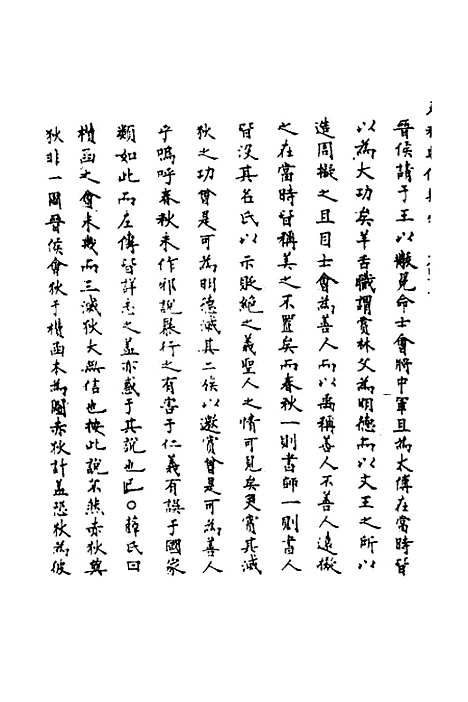 晉侯請于王以黻冕命士會將中軍且為太傅在當時皆
以為大功矣羊舌職謂賞林父為明德而以文王之所以
造周擬之且目士會為善人而以禹稱善人不善人遠擬
之在當時皆稱美之不置矣而春秋一則書師一則書人
皆沒其名氏以示貶絕之義聖人之情可見矣更賞其滅
狄之功曾是可為明德滅其二侯以邀賞曾是可為善人
乎嗚呼春秋未作邪說暴行之有害于仁義有誤于國家
類如此而左傳皆詳志之蓋亦惑于其說也已○薛氏曰
欑函之會未幾而三滅狄大無信也按此說不然赤狄莫
狄非一國晉侯會狄于欑函本為圖赤狄計蓋恐狄為彼